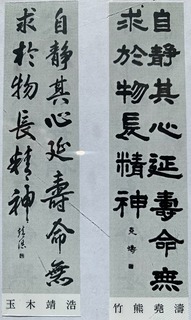 自靜其心延壽命無
求於物長精神
竹熊堯濤
自靜其心延壽命無
求於物長精神
玉木靖浩